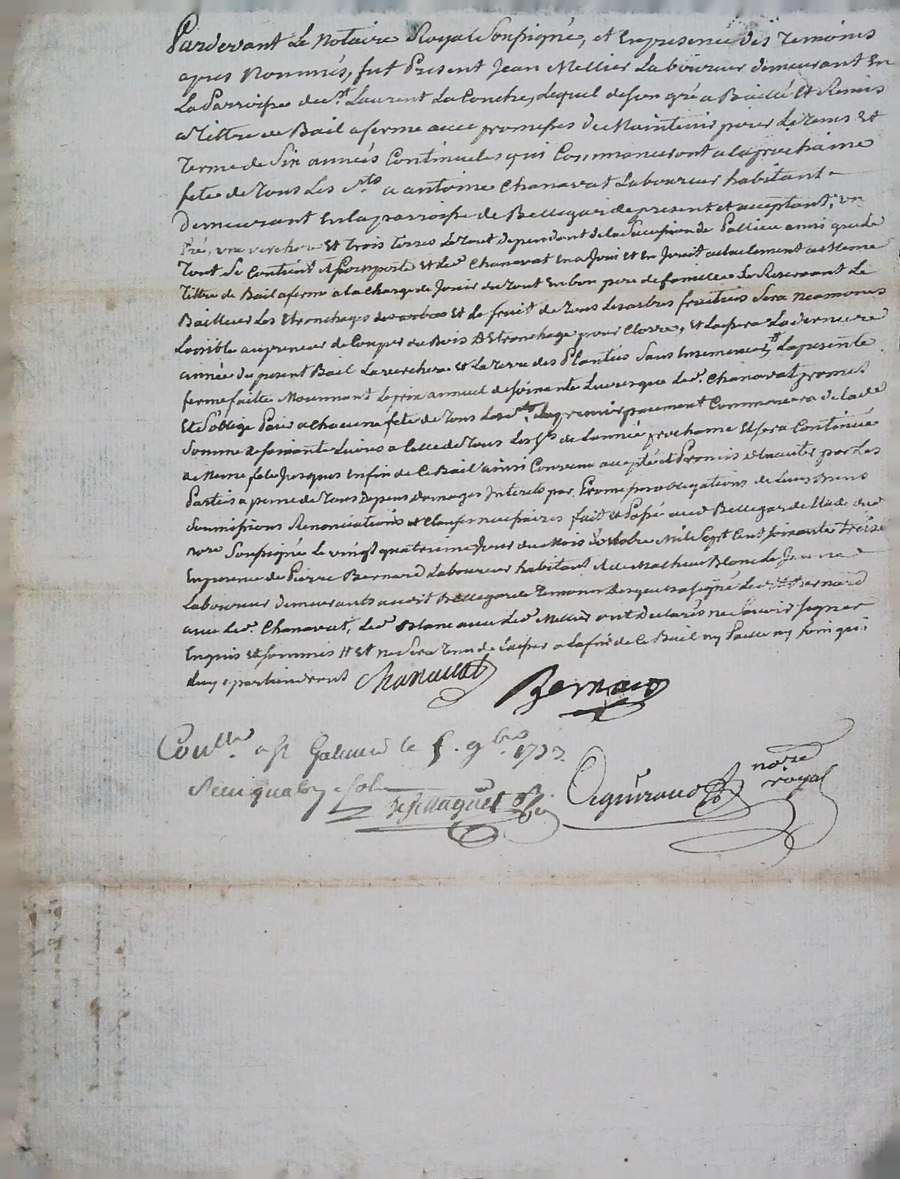 Pardevant Le Notaire Royal Soussigné, et En presence des Temoins
apres Nommés, fut Present Jean Mellier Laboureur demeurant En
La Parroisse de St Laurent La Conche, Lequel de son gré a Baillé Et Remis
a Tittre de Bail a ferme avec promesses de Maintenir pour Le Tems Et
Terme de Six années Continueles qui Commanceront a la prochaine
fete de Tous Les Sts a antoine Chanavat Laboureur habitant
demeurant En la parroisse de Bellegarde present et acceptant, un
Pré, une verchere Et Trois Terres Le Tout dependant de la Succession de ainsi que le
Tout Se Contient Et Comporte Et Led. Chanavat En a Joui et En Jouit actuelement au Meme
Tittre de Bail a ferme a la Charge de Jouir du Tout En bon pere de famille Se Reservant Le
Bailleur Les Etronchages des arbres Et Le fruit de Tous Les arbres fruitiers Sera neamoins
Loisible au preneur de Couper du Bois d'Etronchage pour Clorre, Et Laissera La derniere
année du present Bail La verchere et La Terre des Planties Sans Ensemencer, La presente
ferme faitte Moiennant Le prix annuel de Soixante Livres que Led. Chanavat promet
Et S'oblige Paier a Chacune fete de Tous Les Sts Le premier paiement Commencera de lade
Somme de Soixante Livres a Celle de Tous Les Sts de L'année prochaine Et sera Continué
de Meme fete Jusques En fin de Ce Bail ainsi Convenu accepté et Promis Executer par Les
Parties a peine de Tous Depens domages Interets par Promesses obligations de Leurs Biens
Soumissions Renonciations et Clauses necessaires fait et Passé aud. Bellegarde Etude du
nore Soussigné Le vingt quatrieme Jour du Mois d'octobre Mil Sept Cent Soixante Treize
En presence de Pierre Bernard Laboureur habitant de Mathieu Blanc Le Jeune
Laboureur demeurants audit Bellegarde Temoins Lequel a signé Led. Bernard
avec Led. Chanavat, Led. Blanc avec Led. Mellier ont declarés ne Savoir Signer
Enquis et Sommés Et ne Sera Tenu de Laisser a La fin de Ce Bail ny Paille ny foin qui
Luy apartiendront Chanavat
Bernard
Conllé a St Galmier le 5. 9bre 1773
nore
royal